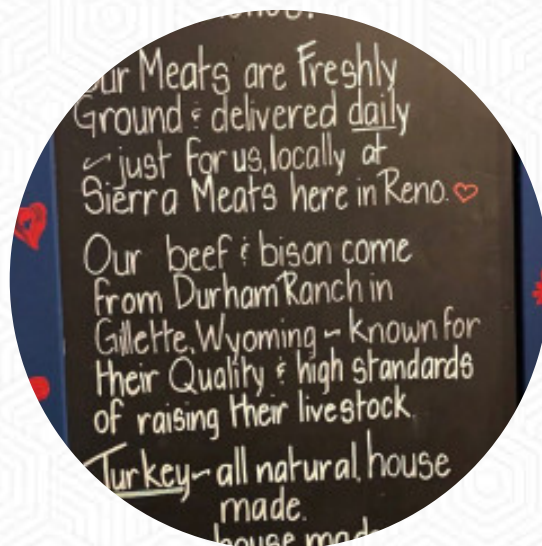 Our Meats are Freshly
Ground & delivered daily
~ just for us, locally at
Sierra Meats here in Reno. ♡
Our beef & bison come
from Durham Ranch in
Gillette, Wyoming ~ known for
their Quality & high standards
of raising their livestock.
Turkey ~ all natural, house
made.
house made